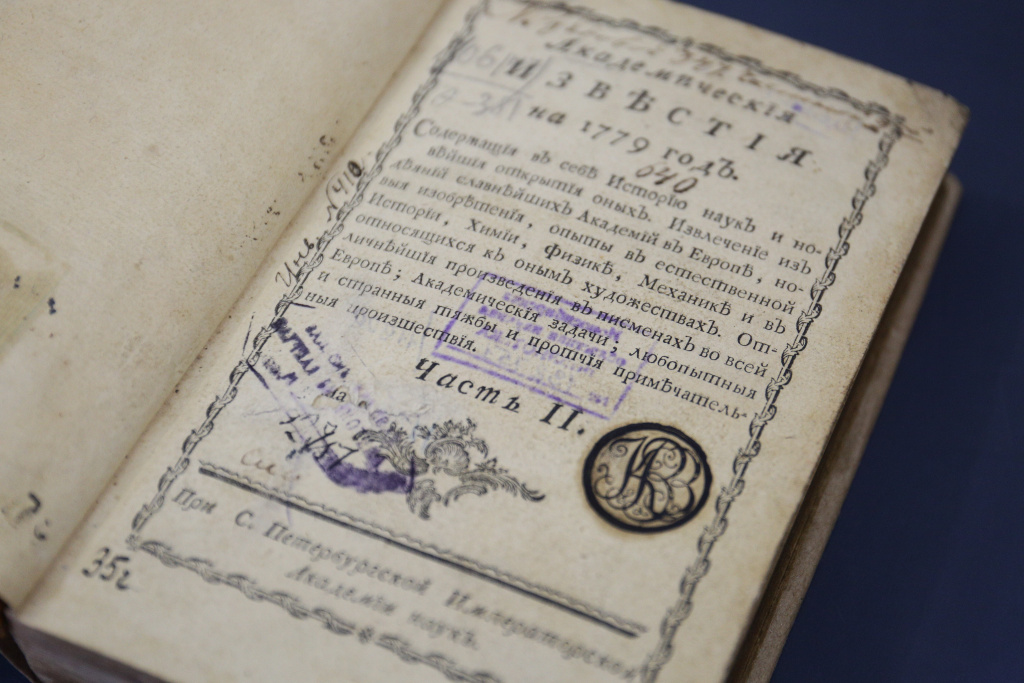 Академическія
ИЗВѢСТІЯ
на 1779 годъ.
640
Содержащія въ себѣ Исторію наукъ и но-
вѣйшія открытія оныхъ. Извлеченіе изъ
дѣяній славнѣйшихъ Академій въ Европѣ, но-
выя изобрѣтенія, опыты въ естественной
Исторіи, Химіи, физикѣ, Механикѣ и въ
относящихся къ онымъ художествахъ. От-
личнѣйшія произведенія въ писменахъ во всей
Европѣ; Академическія задачи; любопытныя
и странныя тяжбы и протчія примѣчатель-
ныя произшествія.
Часть II.
Инв. N 410
При С. Петербургской Императорской
Академіи наукъ.
35г